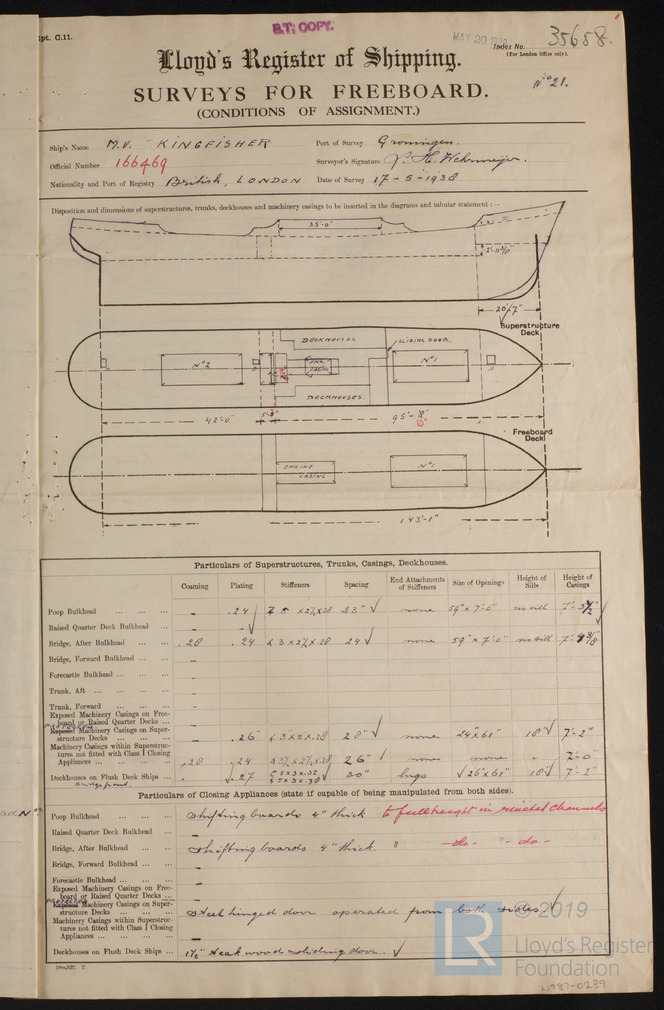 Rpt. C.11.
B.T. COPY.
MAY 20 1938
Index No. 35658.
(For London Office only).
Lloyd's Register of Shipping.
No 21.
SURVEYS FOR FREEBOARD.
(CONDITIONS OF ASSIGNMENT.)
Ship's Name M.V. KINGFISHER Port of Survey Groningen.
Official Number 166469 Surveyor's Signature
Nationality and Port of Registry British, LONDON Date of Survey 17-5-1938
Disposition and dimensions of superstructures, trunks, deckhouses and machinery casings to be inserted in the diagrams and tabular statement :—
35'-0"
20'-7"
Superstructure
Deck
DECKHOUSES.
SLIDING DOOR.
No 2
ENG.
CASING
No 1
DECKHOUSES.
42'-0" 95'-8"
10"
Freeboard
Deck
ENGINE
CASING
No 1
143'-1"
Particulars of Superstructures, Trunks, Casings, Deckhouses.
Coaming Plating Stiffeners Spacing End Attachments of Stiffeners Size of Openings Height of Sills Height of Casings
Poop Bulkhead - .24 33" none 59" x 7'-0" no sill
Raised Quarter Deck Bulkhead -
Bridge, After Bulkhead .28 .24 24 none 59" x 7'-0" no sill
Bridge, Forward Bulkhead -
Forecastle Bulkhead -
Trunk, Aft -
Trunk, Forward -
Exposed Machinery Casings on Freeboard or Raised Quarter Decks -
PROTECTED
Exposed Machinery Casings on Superstructure Decks .26 28" none 24" x 61" 18" 7'-2"
Machinery Casings within Superstructures not fitted with Class I Closing Appliances .28 .24 26" none none 7'-0"
Deckhouses on Flush Deck Ships .27 30" lugs 26" x 61" 18" 7'-2"
Bridge front.
Particulars of Closing Appliances (state if capable of being manipulated from both sides).
Poop Bulkhead shifting boards 4" thick to full height in riveted channels
Raised Quarter Deck Bulkhead -
Bridge, After Bulkhead shifting boards 4" thick. " -do- "-do-
Bridge, Forward Bulkhead -
Forecastle Bulkhead -
Exposed Machinery Casings on Freeboard or Raised Quarter Decks -
PROTECTED
Exposed Machinery Casings on Superstructure Decks Steel hinged door operated from both sides
Machinery Casings within Superstructures not fitted with Class I Closing Appliances -
Deckhouses on Flush Deck Ships 1½" teak wood sliding door.
© 2019
LR
Lloyd's Register
Foundation
W987-0239